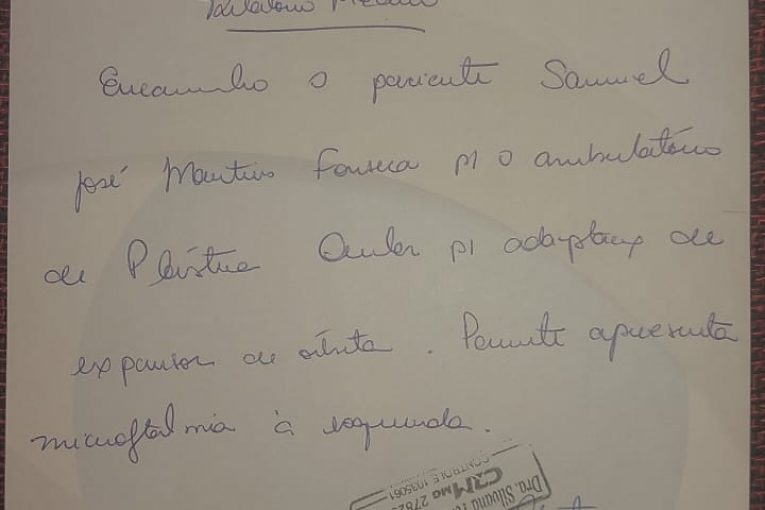 Relatório Médico
Encaminho o paciente Samuel
José Martins Fonseca p/ o ambulatório
de Plástica Ocular p/ adaptação de
expansor de órbita. Paciente apresenta
microftalmia à esquerda.
Dra. Silvana
CRM MG 2762
CONTROLE 1035061